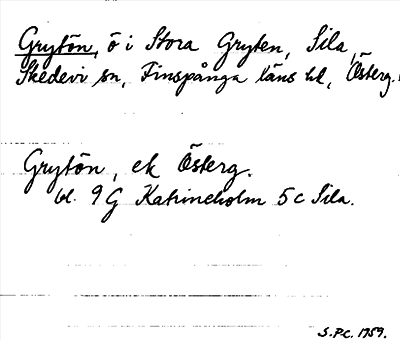 Grytön, ö i Stora Gryten, Sila,
Skedevi sn, Finspånga läns hd, Österg.
Grytön, ek Österg.
bl. 9G Katrineholm 5c Sila.
S.P.C. 1959.